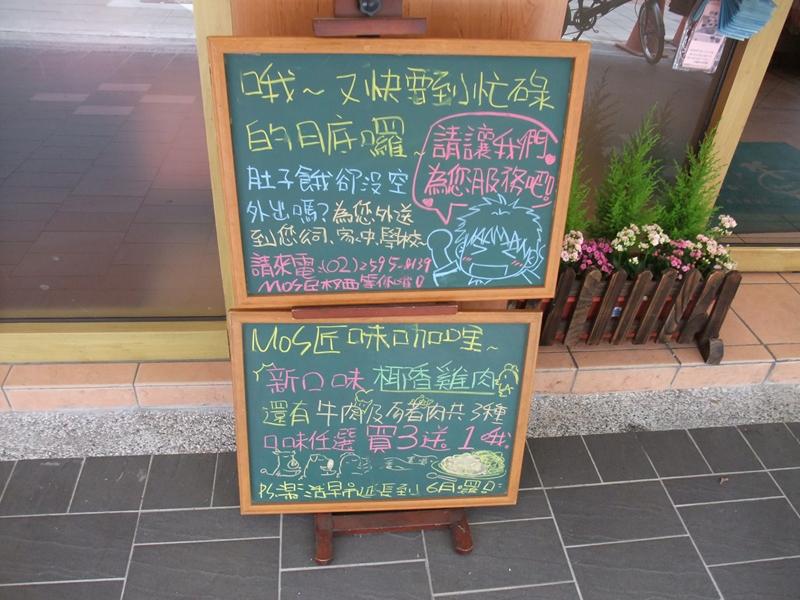 哦~又快要到忙碌
的月底囉~
請讓我們
為您服務吧!
肚子餓卻沒空
外出嗎?為您外送
到您公司、家中、學校
請來電:(02)2595-8139
MOS民權西等你喔!
MOS匠味咖哩~
新口味 椰香雞肉
還有牛肉及豬肉共3種
口味任選 買3送1哦!